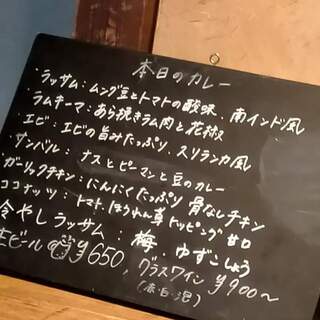 本日のカレー
・ラッサム：ムング豆とトマトの酸味、南インド風
・ラムキーマ：あら挽きラム肉と花椒
・エビ：エビの旨みたっぷり、スリランカ風
・サンバル：ナスとピーマンと豆のカレー
ガーリックチキン：にんにくたっぷり 骨なしチキン
ココナッツ：トマト、ほうれん草トッピング 甘口
冷やしラッサム：梅 ゆずこしょう
生ビール ¥650, グラスワイン ¥900〜
(赤・白・泡)